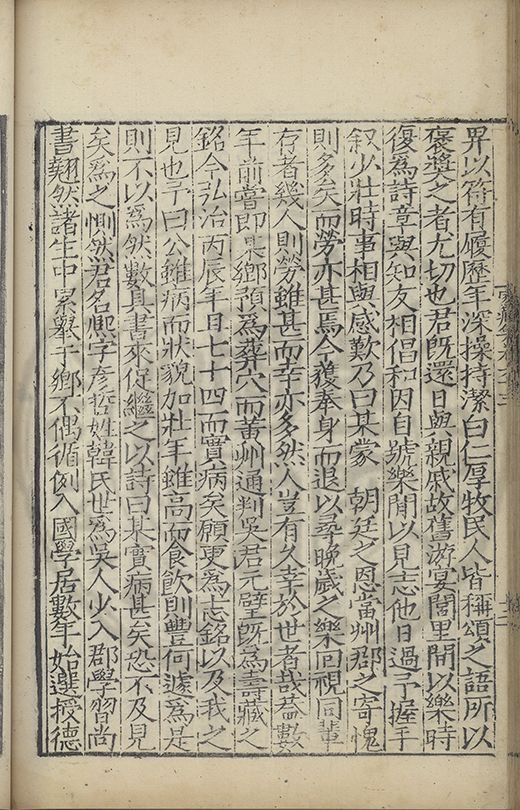 畀以符有履歷年深操持潔白仁厚牧民人皆稱頌之語所以
褒奬之者尤切也君旣還日與親戚故舊游宴閭里間以樂時
復爲詩章與知友相倡和因自號樂閒以見志他日過予握手
叙少壯時事相與感歎乃曰某蒙 朝廷之恩當州郡之寄愧
則多矣而勞亦甚焉今獲奉身而退以尋晚歲之樂回視同輩
存者幾人則勞雖甚而幸亦多然人豈有久幸於世者哉葢數
年前嘗即某鄉預爲葬穴而黃州通判吳君元璧旣爲壽藏之
銘今弘治丙辰年日七十四而實病矣願更爲志銘以及我之
見也予曰公雖病而狀貌加壯年雖高而食飮則豐何遽爲是
則不以爲然數具書來促繼之以詩曰某實病甚矣恐不及見
矣爲之惻然君名熈字彥哲姓韓氏世爲吳人少入郡學習尚
書翹然諸生中累舉于鄉不偶循例入國學居數年始選授德